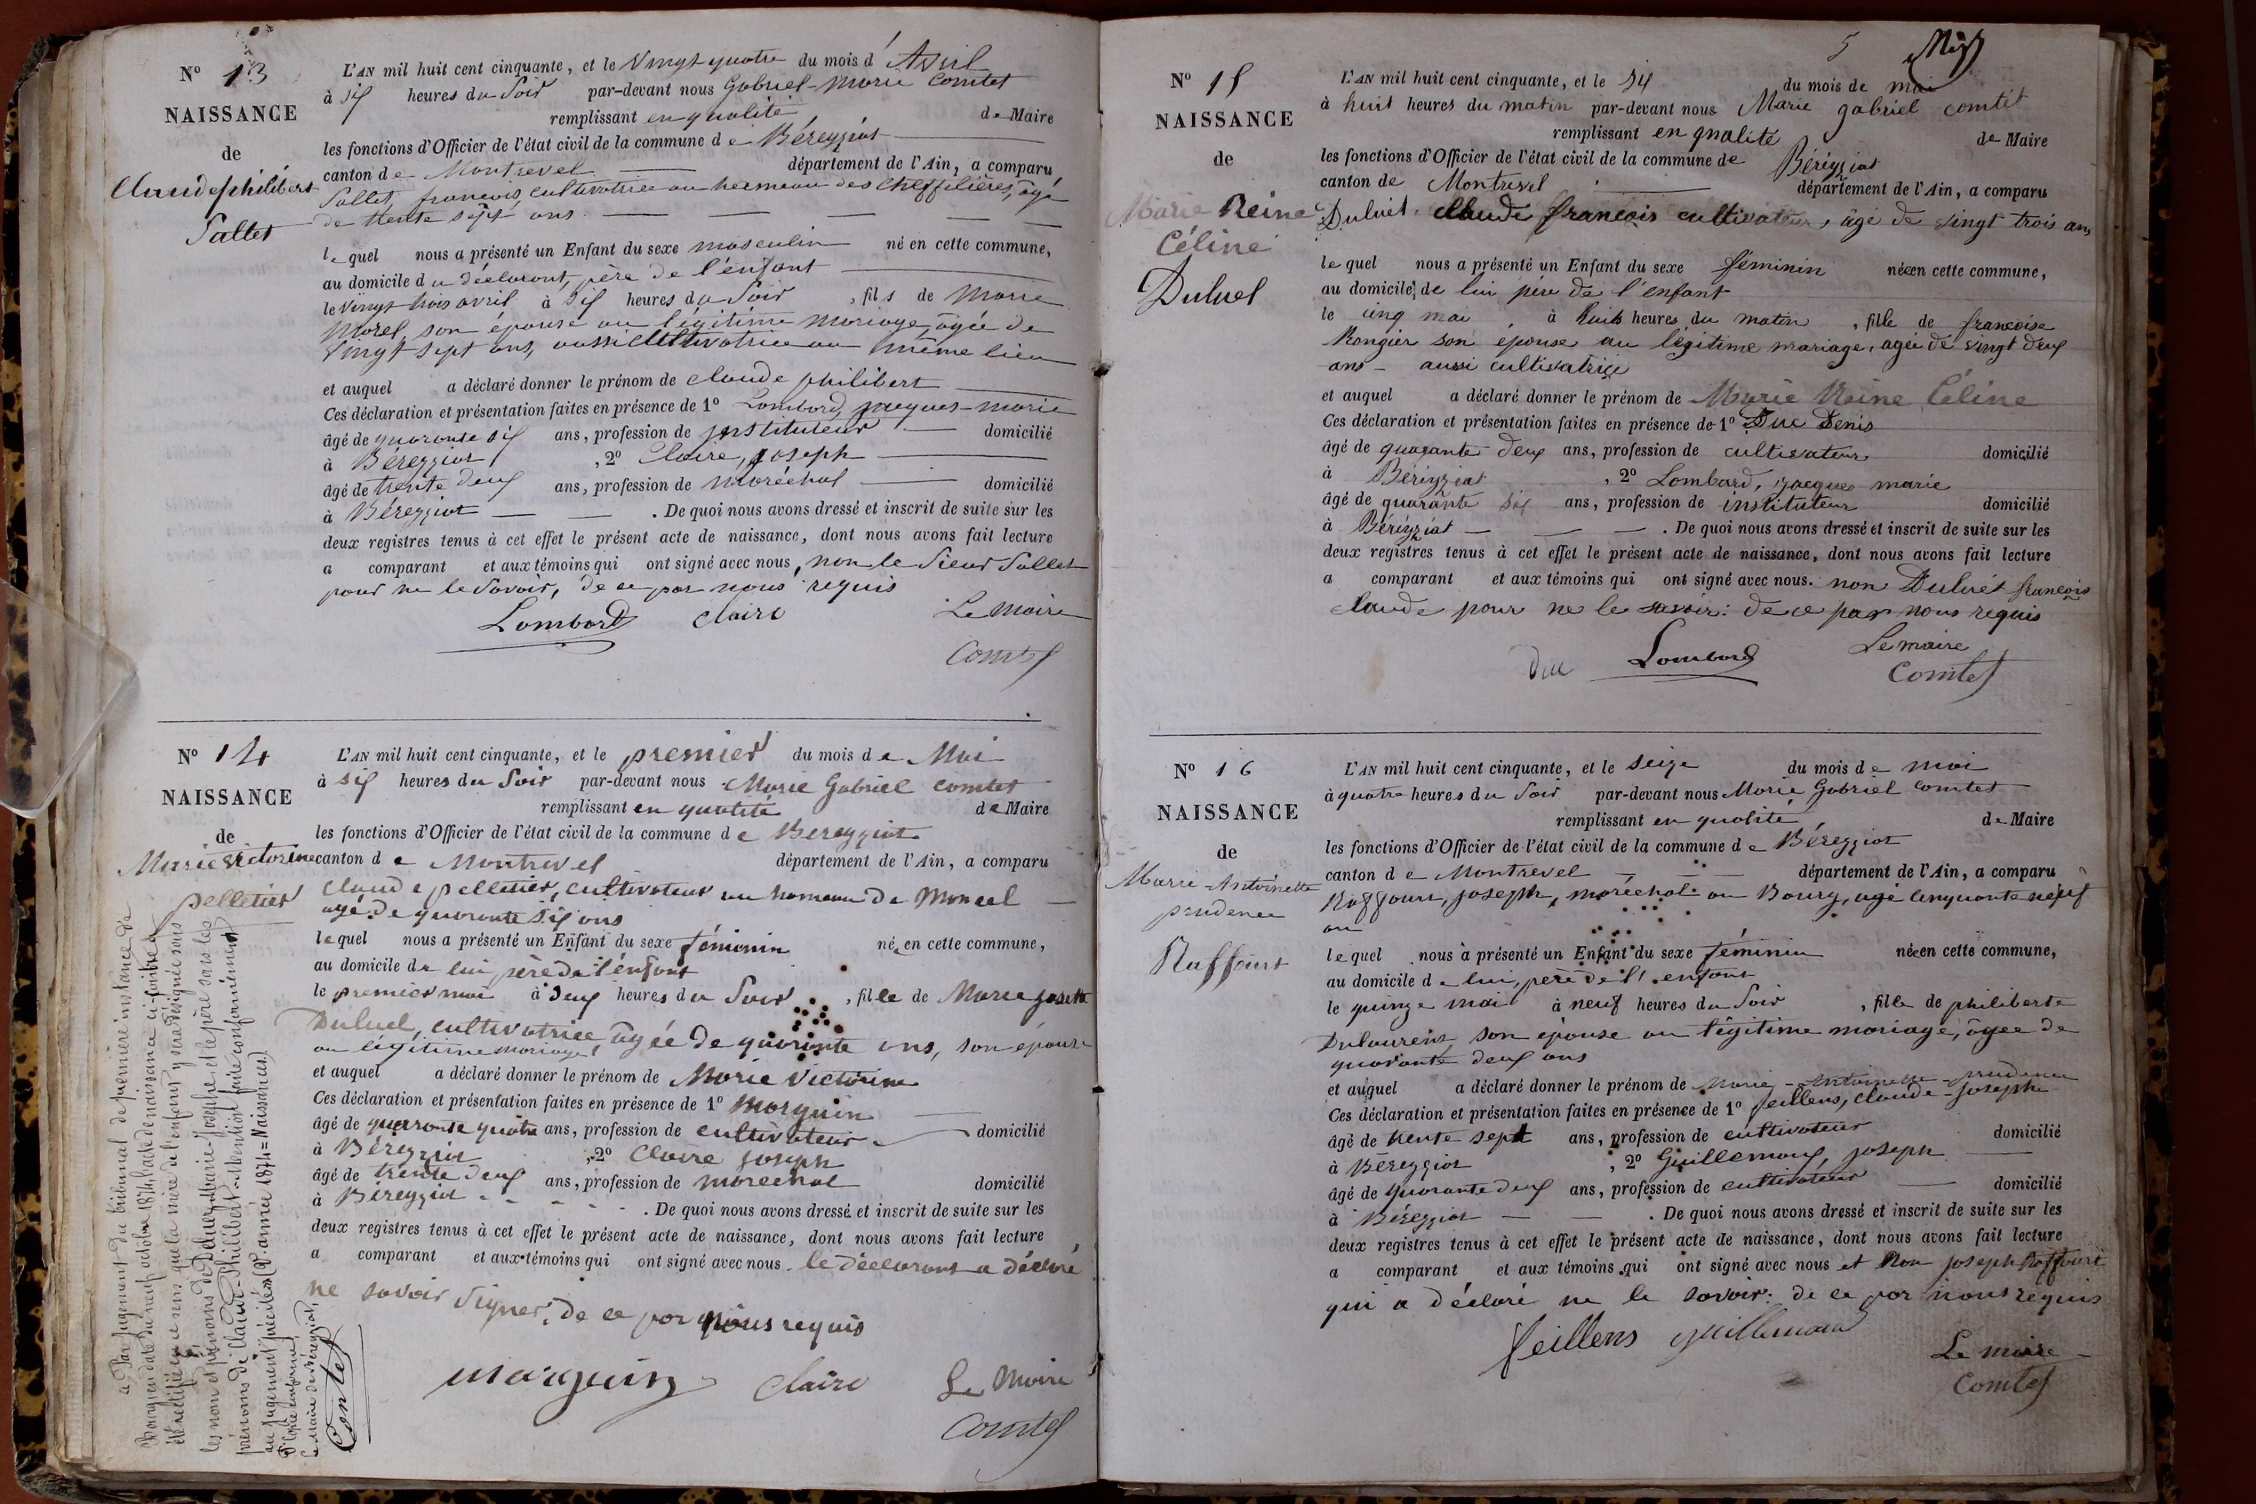 N° 13
NAISSANCE
de
Claude philibert
Sallet
L'AN mil huit cent cinquante, et le Vingt quatre du mois d'Avril
à six heures du Soir par-devant nous Gabriel-Marie Comtet
remplissant en qualité de Maire
les fonctions d'Officier de l'état civil de la commune de Béreyziat
canton de Montrevel département de l'Ain, a comparu
Sallet, francois, cultivatrice au hermeau des âgé
de trente sept ans
lequel nous a présenté un Enfant du sexe masculin né en cette commune,
au domicile du déclarant, père de l'enfant
le Vingt trois avril à six heures du Soir, fils de Marie
Morel, son épouse en légitime mariage, âgée de
Vingt sept ans, aussi Cultivatrice au même lieu
et auquel a déclaré donner le prénom de claude philibert
Ces déclaration et présentation faites en présence de 1° Lombard, jacques-marie
âgé de quaronte six ans, profession de instituteur domicilié
à Béreyziat, 2° Claire, joseph
âgé de trente deux ans, profession de maréchal domicilié
à Béreyziat. De quoi nous avons dressé et inscrit de suite sur les
deux registres tenus à cet effet le présent acte de naissance, dont nous avons fait lecture
a comparant et aux témoins qui ont signé avec nous, non le Sieur Sallet
pour ne le Savoir, de ce par nous requis
Lombard Claire Le Maire
Comtet
N° 14
NAISSANCE
de
Marie Victorine
pelletier
L'AN mil huit cent cinquante, et le premier du mois de Mai
à six heures du Soir par-devant nous Marie Gabriel Comtet
remplissant en qualité de Maire
les fonctions d'Officier de l'état civil de la commune de Bereyziat
canton de Montrevel département de l'Ain, a comparu
Claude pelletier, cultivateur au hameau de Moncel
agé de quaronte six ans
lequel nous a présenté un Enfant du sexe féminin née en cette commune,
au domicile de lui père de l'enfant
le premier mai à deux heures du Soir, fille de Marie josette
Duluel, cultivatrice, âgée de quaronte ans, son épouse
en légitime mariage,
et auquel a déclaré donner le prénom de Marie Victorine
Ces déclaration et présentation faites en présence de 1° Morguin
âgé de quaronte quatre ans, profession de cultivateur domicilié
à Béreyziat, 2° Claire joseph
âgé de trente deux ans, profession de marechal domicilié
à Béreyziat. De quoi nous avons dressé et inscrit de suite sur les
deux registres tenus à cet effet le présent acte de naissance, dont nous avons fait lecture
a comparant et aux témoins qui ont signé avec nous. le déclarant a déclaré
ne savoir Signer, de ce par nous requis
Marguin Claire Le Maire
Comtet
Par jugement du tribunal de première instance de
Bourg en date du neuf octobre 1874, l'acte de naissance ci-contre a
été rectifié en ce sens que la mère de l'enfant y sera désignée sous
les nom et prénoms de Deluer, Marie-Josephe, et le père sous les
prénoms de Claude-Philibert. Mention faite conformément
au jugement précité. (V. année 1874 = Naissances)
Pr copie conforme,
Le Maire de Béreyziat,
Comtet
5
N° 15
NAISSANCE
de
Marie Reine
Céline
Duluel
L'AN mil huit cent cinquante, et le six du mois de mai
à huit heures du matin par-devant nous Marie gabriel comtet
remplissant en qualité de Maire
les fonctions d'Officier de l'état civil de la commune de Béréyziat
canton de Montrevel département de l'Ain, a comparu
Duluét. Claude francois cultivateur, âgé de vingt trois ans
lequel nous a présenté un Enfant du sexe féminin née en cette commune,
au domicile de lui pere de l'enfant
le cinq mai à huit heures du matin, fille de francoise
Rongier son épouse en légitime mariage, agée de vingt deux
ans - aussi cultivatrice
et auquel a déclaré donner le prénom de Marie Reine Céline
Ces déclaration et présentation faites en présence de 1° Duc Denis
âgé de quarante deux ans, profession de cultivateur domicilié
à Béréyziat, 2° Lombard, jacques marie
âgé de quarante six ans, profession de instituteur domicilié
à Béréyziat. De quoi nous avons dressé et inscrit de suite sur les
deux registres tenus à cet effet le présent acte de naissance, dont nous avons fait lecture
a comparant et aux témoins qui ont signé avec nous. non Duluét francois
Claude pour ne le savoir: de ce par nous requis
Duc Lombard Le maire
Comtet
N° 16
NAISSANCE
de
Marie-Antoinette
prudence
Raffourt
L'AN mil huit cent cinquante, et le seize du mois de mai
à quatre heures du Soir par-devant nous Marie Gabriel Comtet
remplissant en qualité de Maire
les fonctions d'Officier de l'état civil de la commune de Béreyziat
canton de Montrevel département de l'Ain, a comparu
Raffourt, joseph, maréchal au Bourg, agé cinquante neuf
ans
lequel nous a présenté un Enfant du sexe féminin née en cette commune,
au domicile de lui, père de l'enfant
le quinze mai à neuf heures du Soir, fille de philiberte
Dulaurent, son épouse en légitime mariage, agée de
quaronte deux ans
et auquel a déclaré donner le prénom de Marie-Antoinette-prudence
Ces déclaration et présentation faites en présence de 1° feillens, claude-Joseph
âgé de trente sept ans, profession de cultivateur domicilié
à Béreyziat, 2° Guillemoux, joseph
âgé de quaronte deux ans, profession de cultivateur domicilié
à Béreyziat. De quoi nous avons dressé et inscrit de suite sur les
deux registres tenus à cet effet le présent acte de naissance, dont nous avons fait lecture
a comparant et aux témoins qui ont signé avec nous et non joseph Raffourt
qui a déclaré ne le savoir. de ce par nous requis
feillens Le maire
Comtet